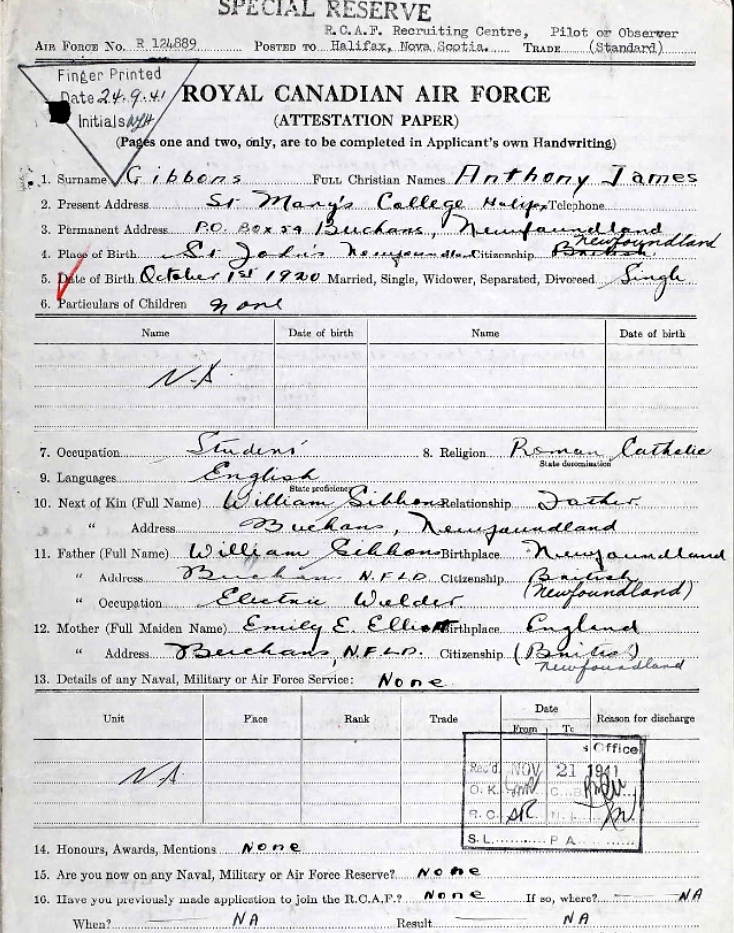 SPECIAL RESERVE
R.C.A.F. Recruiting Centre, Pilot or Observer
AIR FORCE NO. R 124889 POSTED TO Halifax, Nova Scotia. TRADE (Standard)
Finger Printed
Date 24.9.41
Initials
ROYAL CANADIAN AIR FORCE
(ATTESTATION PAPER)
(Pages one and two, only, are to be completed in Applicant's own Handwriting)
1. Surname Gibbons FULL Christian Names Anthony James
2. Present Address St Mary's College Halifax Telephone
3. Permanent Address P.O. Box 59 Buchans, Newfoundland
Newfoundland
4. Place of Birth St John's Newfoundland Citizenship British
5. Date of Birth October 1st 1920 Married, Single, Widower, Separated, Divorced Single
6. Particulars of Children none
Name Date of birth Name Date of birth
N.A.
7. Occupation Student 8. Religion Roman Catholic
State denomination
9. Languages English
State proficiency
10. Next of Kin (Full Name) William Gibbons Relationship Father
" Address Buchans, Newfoundland
11. Father (Full Name) William Gibbons Birthplace Newfoundland
" Address Buchans N.F.L.D. Citizenship British
(Newfoundland)
" Occupation Electric Welder
12. Mother (Full Maiden Name) Emily E. Elliott Birthplace England
" Address Buchans, N.F.L.D. Citizenship (British)
Newfoundland
13. Details of any Naval, Military or Air Force Service: None
Unit Place Rank Trade Date From To Reason for discharge
N.A.
s Office
Rec'd. NOV 21 1941
O. K. C. B.
R. C. SR N.
S. L. P A
14. Honours, Awards, Mentions None
15. Are you now on any Naval, Military or Air Force Reserve? None
16. Have you previously made application to join the R.C.A.F.? None If so, where? NA
When? NA Result NA